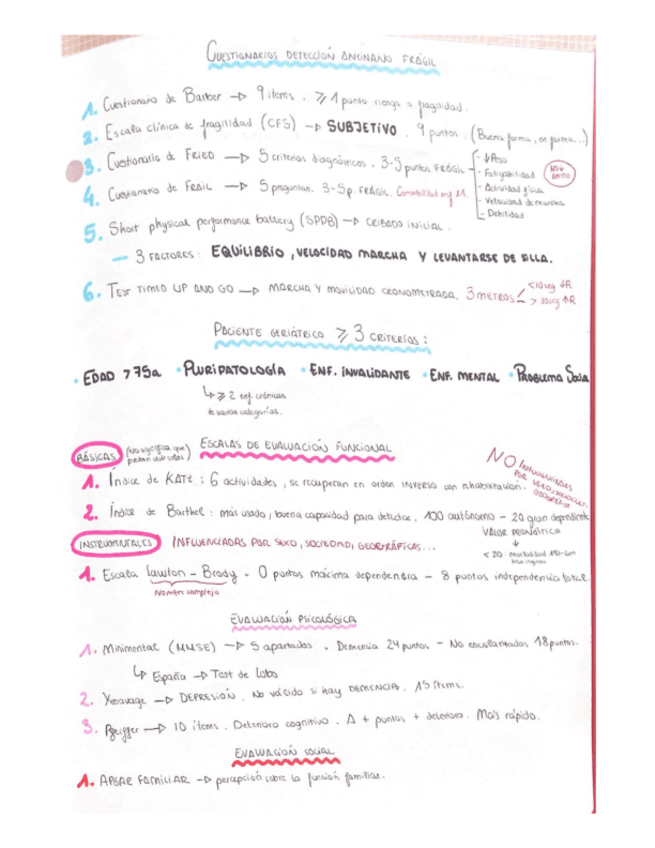 CUESTIONARIOS DETECCIÓN ANCIANO FRÁGIL
1. Cuestionario de Barber → 9 items. ≥ 1 punto riesgo = fragilidad.
2. Escala clínica de fragilidad (CFS) → SUBJETIVO. 9 puntos. (Buena forma, en forma...)
3. Cuestionario de FRIED → 5 criterios diagnósticos. 3-5 puntos FRÁGIL
- ↓ Peso
- Fatigabilidad
- Actividad física
- Velocidad de marcha
- Debilidad
4. Cuestionario de FRAIL → 5 preguntas. 3-5p. FRÁGIL.
5. Short physical performance battery (SPPB) → CRIBADO INICIAL.
— 3 FACTORES: EQUILIBRIO, VELOCIDAD MARCHA Y LEVANTARSE DE SILLA.
6. TEST TIMED UP AND GO → MARCHA Y MOVILIDAD CRONOMETRADA. 3 METROS
< 10 seg ↓R
> 30seg ↑R
PACIENTE GERIÁTRICO ≥ 3 CRITERIOS:
• EDAD > 75a • PLURIPATOLOGÍA • ENF. INVALIDANTE • ENF. MENTAL • PROBLEMA
↳ ≥ 2 enf. crónicas
de varias categorías.
BÁSICAS (No significa que
ESCALAS DE EVALUACIÓN FUNCIONAL
NO INFLUENCIADAS
POR SEXO,
1. Índice de KATZ: 6 actividades, se recuperan en orden INVERSO con rehabilitación.
2. Índice de Barthel: más usado, buena capacidad para detectar. 100 autónomo - 20 gran dependiente
VALOR PRONÓSTICO
↓
< 20 - mortalidad
INSTRUMENTALES INFLUENCIADAS POR SEXO, SOCIEDAD, GEOGRÁFICAS...
1. Escala Lawton - Brody. 0 puntos máxima dependencia - 8 puntos independencia total.
Nombre complejo
EVALUACIÓN PSICOLÓGICA
1. Minimental (MMSE) → 5 apartados. Demencia 24 puntos - No escolarizados 18 puntos.
↳ España → Test de Lobo
2. Yesavage → DEPRESIÓN. No válido si hay DEMENCIA. 15 ítems.
3. Pfeiffer → 10 ítems. Deterioro cognitivo. Δ + puntos + deterioro. Más rápido.
EVALUACIÓN SOCIAL
1. APGAR FAMILIAR → percepción sobre la función familiar.